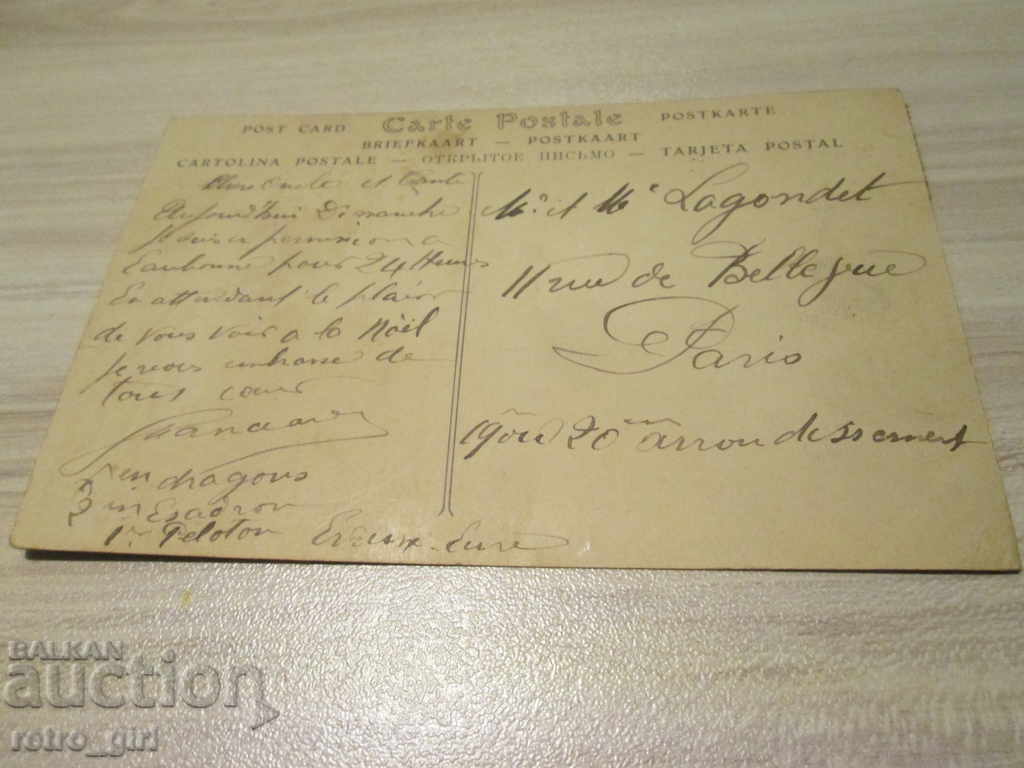 POST CARD Carte Postale POSTKARTE
BRIEFKAART — POSTKAART
CARTOLINA POSTALE — ОТКРЫТОЕ ПИСЬМО — TARJETA POSTAL
Oncle et Tante
Aujourd'hui Dimanche
je suis en permission a
Eaubonne pour 24 Heures
En attendant le plaisir
de vous voir a la Nöel
je vous embrasse de
tous cœur
en dragons
3 em Escadron
1er Peloton Evreux. Eure
Mr et Me Lagondet
11 rue de Bellevue
Paris
19 ou 20 em arrondissement
BALKAN
auction
retro_girl